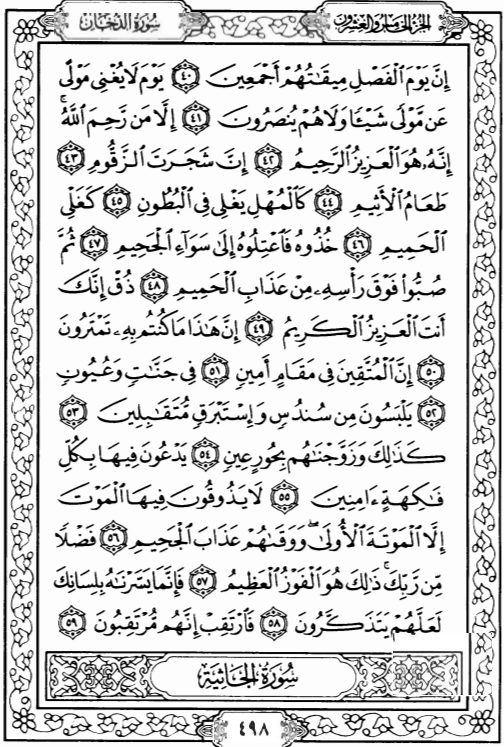 سُورَةُ الدُّخَانِ
الجُزْءُ الخَامِسُ وَالعِشْرُونَ
إِنَّ يَوْمَ الْفَصْلِ مِيقَاتُهُمْ أَجْمَعِينَ ٤٠ يَوْمَ لَا يُغْنِي مَوْلًى
عَن مَّوْلًى شَيْئًا وَلَا هُمْ يُنصَرُونَ ٤١ إِلَّا مَن رَّحِمَ اللَّهُ ۚ
إِنَّهُ هُوَ الْعَزِيزُ الرَّحِيمُ ٤٢ إِنَّ شَجَرَتَ الزَّقُّومِ ٤٣
طَعَامُ الْأَثِيمِ ٤٤ كَالْمُهْلِ يَغْلِي فِي الْبُطُونِ ٤٥ كَغَلْيِ
الْحَمِيمِ ٤٦ خُذُوهُ فَاعْتِلُوهُ إِلَىٰ سَوَاءِ الْجَحِيمِ ٤٧ ثُمَّ
صُبُّوا فَوْقَ رَأْسِهِ مِنْ عَذَابِ الْحَمِيمِ ٤٨ ذُقْ إِنَّكَ
أَنتَ الْعَزِيزُ الْكَرِيمُ ٤٩ إِنَّ هَٰذَا مَا كُنتُم بِهِ تَمْتَرُونَ
٥٠ إِنَّ الْمُتَّقِينَ فِي مَقَامٍ أَمِينٍ ٥١ فِي جَنَّاتٍ وَعُيُونٍ
٥٢ يَلْبَسُونَ مِن سُندُسٍ وَإِسْتَبْرَقٍ مُّتَقَابِلِينَ ٥٣
كَذَٰلِكَ وَزَوَّجْنَاهُم بِحُورٍ عِينٍ ٥٤ يَدْعُونَ فِيهَا بِكُلِّ
فَاكِهَةٍ ءَامِنِينَ ٥٥ لَا يَذُوقُونَ فِيهَا الْمَوْتَ
إِلَّا الْمَوْتَةَ الْأُولَىٰ ۖ وَوَقَاهُمْ عَذَابَ الْجَحِيمِ ٥٦ فَضْلًا
مِّن رَّبِّكَ ۚ ذَٰلِكَ هُوَ الْفَوْزُ الْعَظِيمُ ٥٧ فَإِنَّمَا يَسَّرْنَاهُ بِلِسَانِكَ
لَعَلَّهُمْ يَتَذَكَّرُونَ ٥٨ فَارْتَقِبْ إِنَّهُم مُّرْتَقِبُونَ ٥٩
سُورَةُ الجَاثِيَةِ
٤٩٨